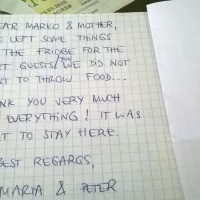 EAR MARKO & MOTHER,
E LEFT SOME THINGS
THE FRIDGE FOR THE
T GUESTS/YOU WE DID NOT
NT TO THROW FOOD....
NK YOU VERY MUCH
EVERYTHING! IT WAS
T TO STAY HERE.
BEST REGARGS,
MARIA & PETER